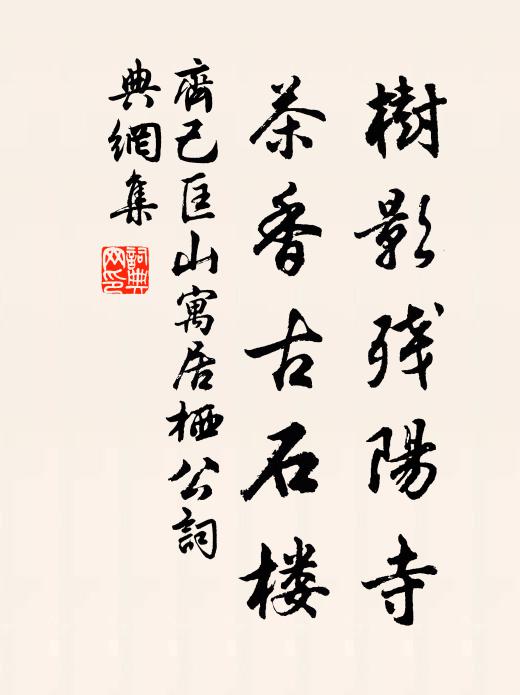 樹影残陽寺
茶香古石楼
齊己匡山寓居栖公詞
典網集
詞典
网印